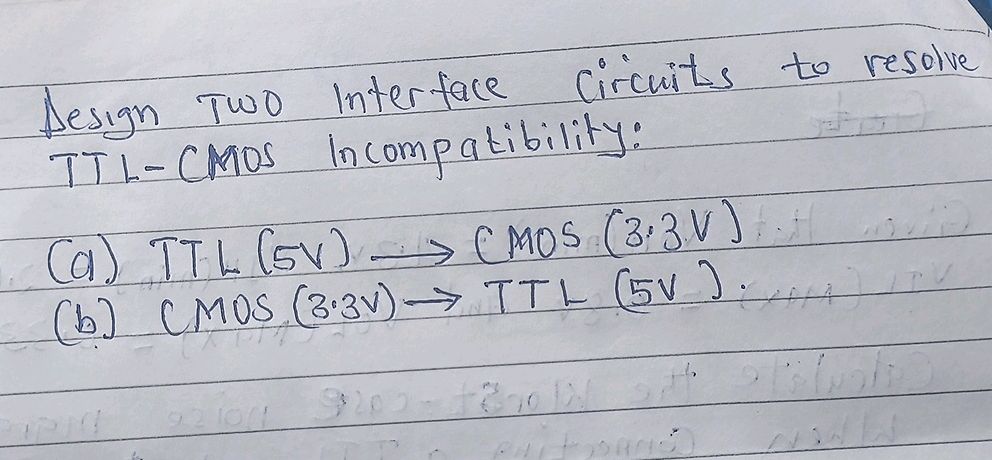 Design TWO Interface Circuits to resolve
TTL-CMOS Incompatibility:
(a) TTL (5V) → CMOS (3.3V)
(b) CMOS (3.3V) → TTL (5V).